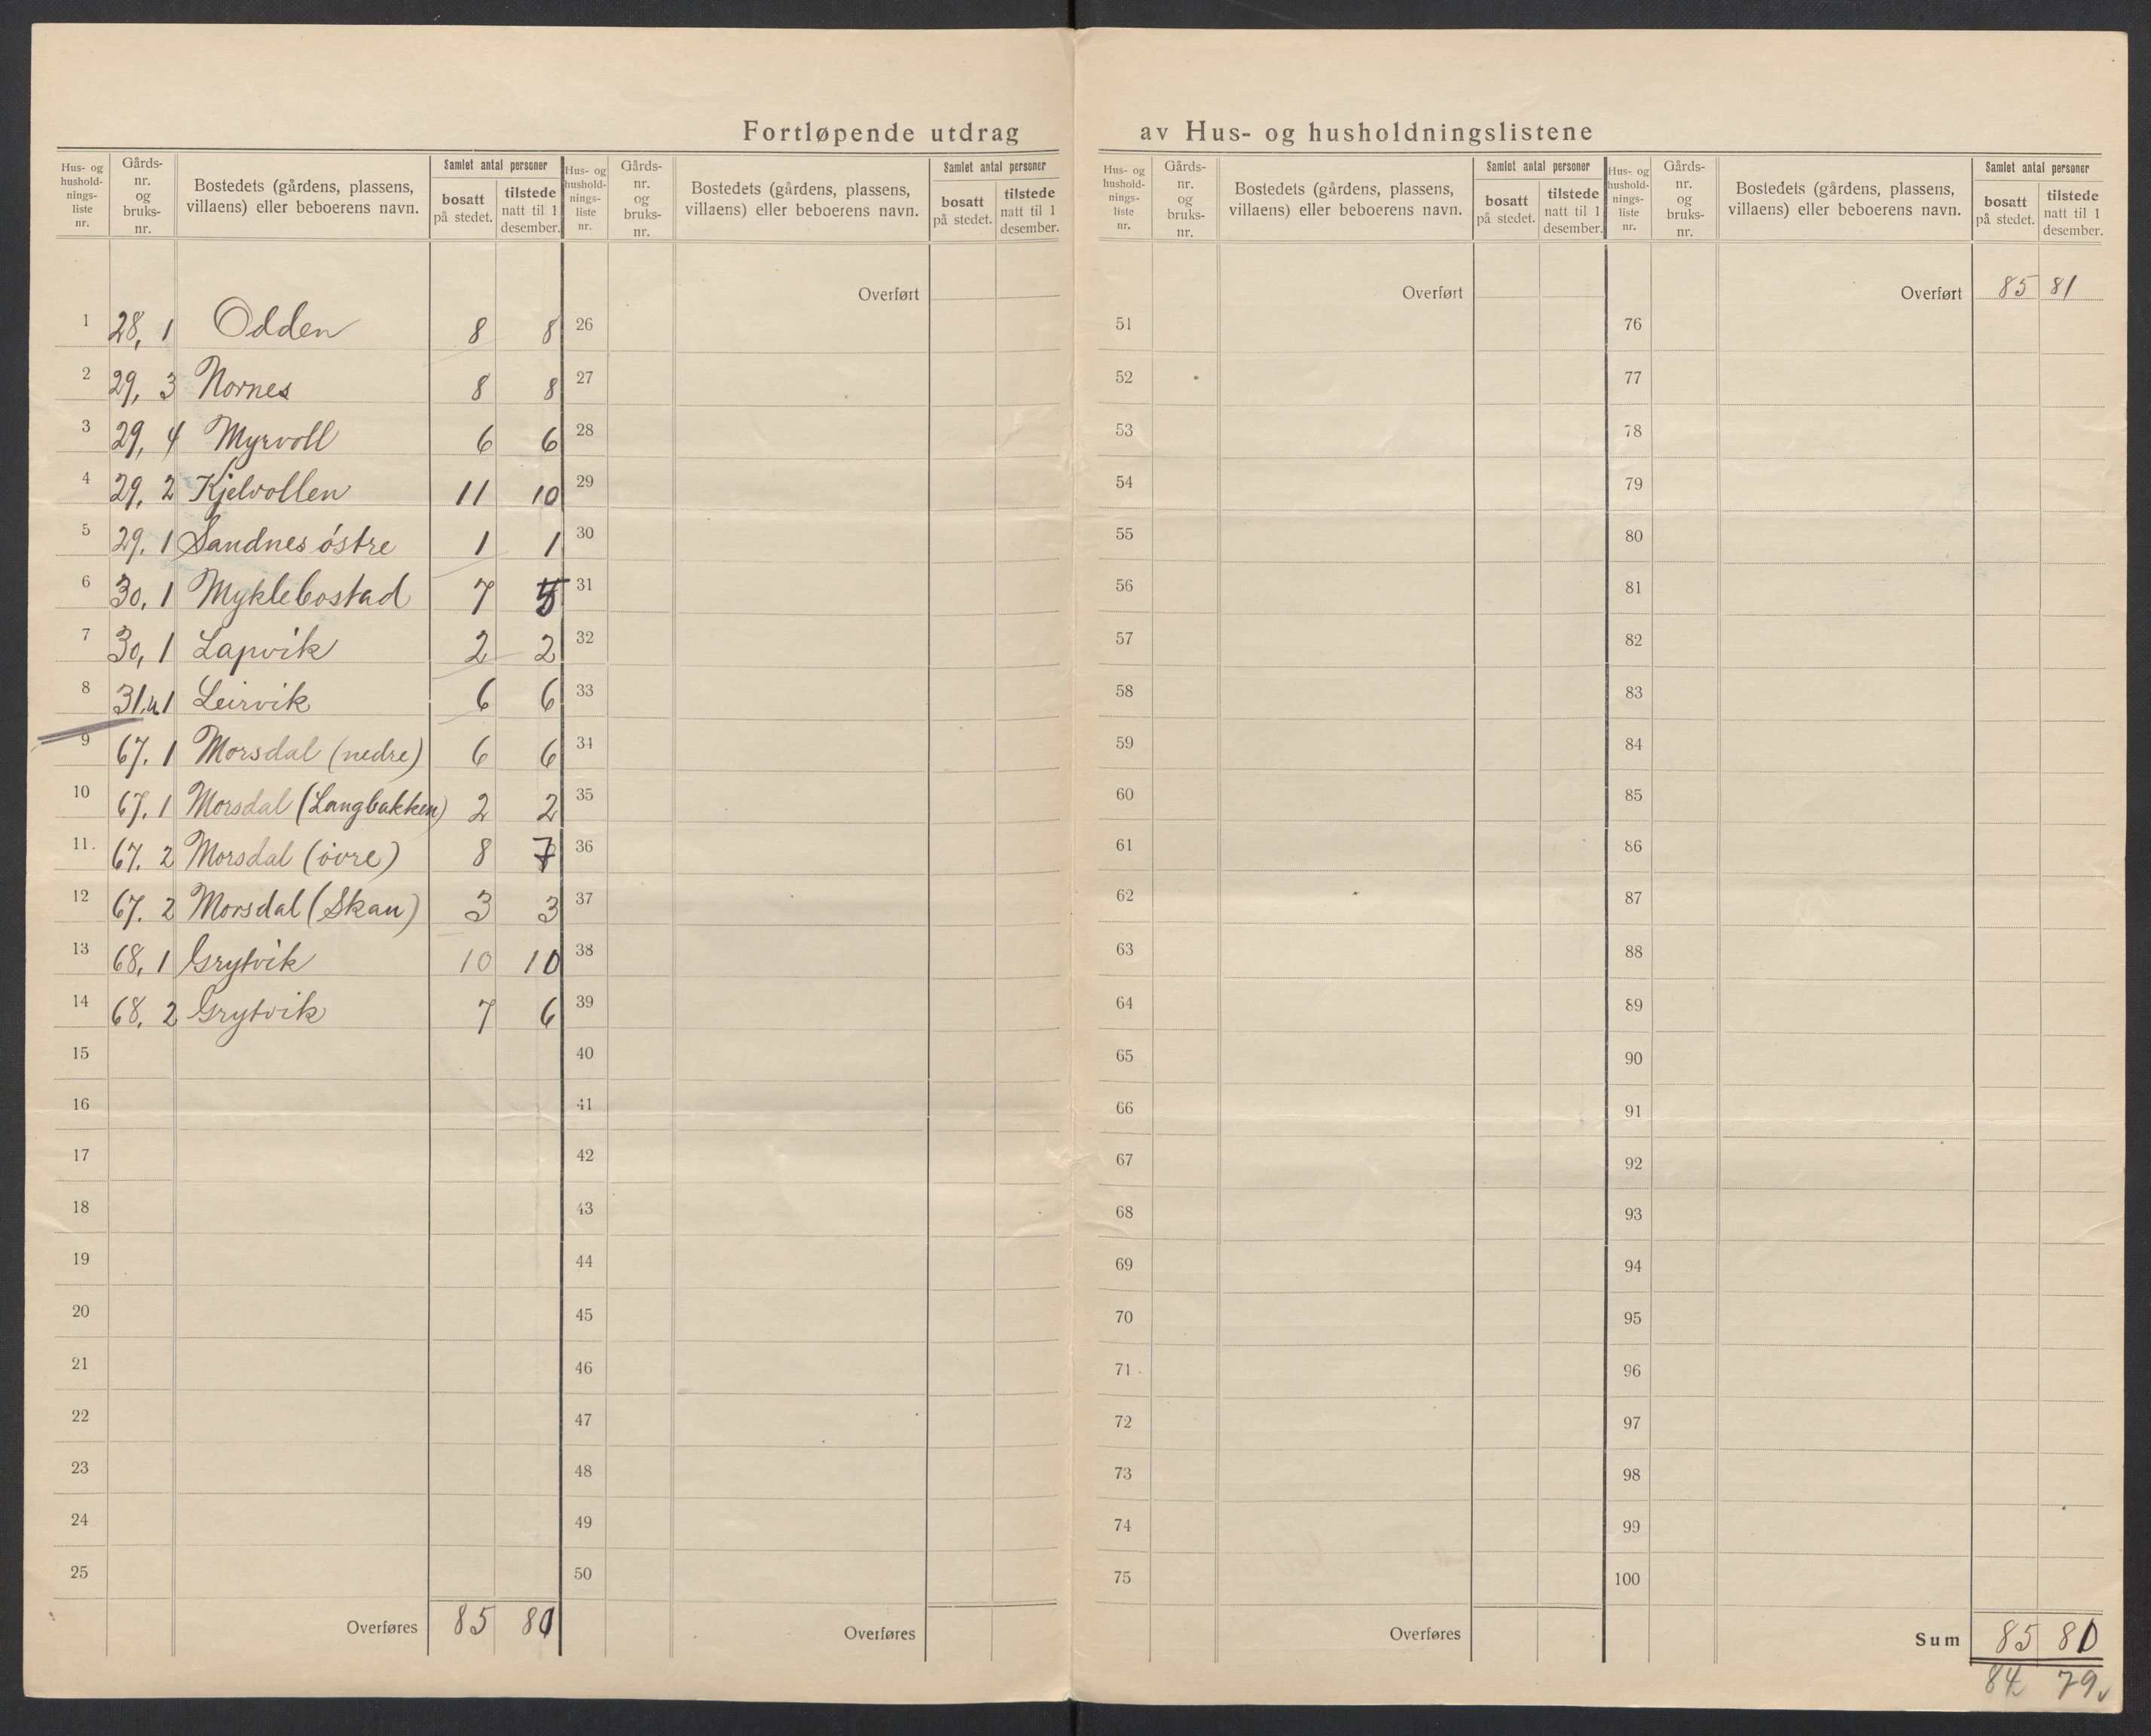 Fortløpende utdrag av Hus- og husholdningslistene
Hus- og hushold-nings-liste nr. Gårds-nr. og bruks-nr. Bostedets (gårdens, plassens, villaens) eller beboerens navn. Samlet antal personer bosatt på stedet. tilstede natt til 1 desember.
1 28, 1 Odden 8 8
2 29, 3 Nornes 8 8
3 29, 4 Myrvoll 6 6
4 29, 2 Kjelvollen 11 10
5 29. 1 Sandnes östre 1 1
6 30, 1 Myklebostad 7 5
7 30, 1 Lapvik 2 2
8 31. 1 Leirvik 6 6
9 67. 1 Morsdal (nedre) 6 6
10 67. 1 Morsdal (Langbakken) 2 2
11. 67. 2 Morsdal (övre) 8 7
12 67. 2 Morsdal (Skau) 3 3
13 68, 1 Grytvik 10 10
14 68. 2 Grytvik 7 6
15
16
17
18
19
20
21
22
23
24
25
Overføres 85 80
Hus- og hushold-nings-liste nr. Gårds-nr. og bruks-nr. Bostedets (gårdens, plassens, villaens) eller beboerens navn. Samlet antal personer bosatt på stedet. tilstede natt til 1 desember.
Overført
26
27
28
29
30
31
32
33
34
35
36
37
38
39
40
41
42
43
44
45
46
47
48
49
50
Overføres
Hus- og hushold-nings-liste nr. Gårds-nr. og bruks-nr. Bostedets (gårdens, plassens, villaens) eller beboerens navn. Samlet antal personer bosatt på stedet. tilstede natt til 1 desember.
Overført
51
52
53
54
55
56
57
58
59
60
61
62
63
64
65
66
67
68
69
70
71
72
73
74
75
Overføres
Hus- og hushold-nings-liste nr. Gårds-nr. og bruks-nr. Bostedets (gårdens, plassens, villaens) eller beboerens navn. Samlet antal personer bosatt på stedet. tilstede natt til 1 desember.
Overført 85 81
76
77
78
79
80
81
82
83
84
85
86
87
88
89
90
91
92
93
94
95
96
97
98
99
100
Sum 85 80
84 79